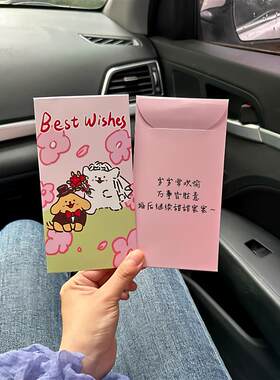 Best Wishes
岁岁常欢愉
万事皆胜意
婚后继续甜甜蜜蜜~